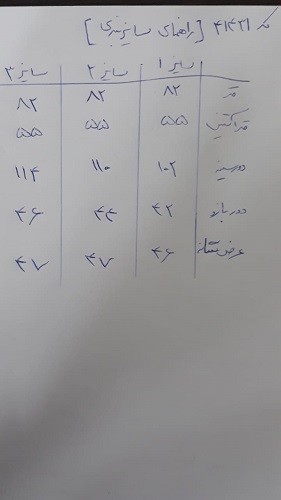 کد ۴۱۴۲۱ [راهنمای سایزبندی]
سایز ۱ سایز ۲ سایز ۳
قد ۸۲ ۸۲ ۸۲
قد آستین ۵۵ ۵۵ ۵۵
دورسینه ۱۰۲ ۱۱۰ ۱۱۴
دور بازو ۴۲ ۴۴ ۴۶
عرض شانه ۴۶ ۴۷ ۴۷